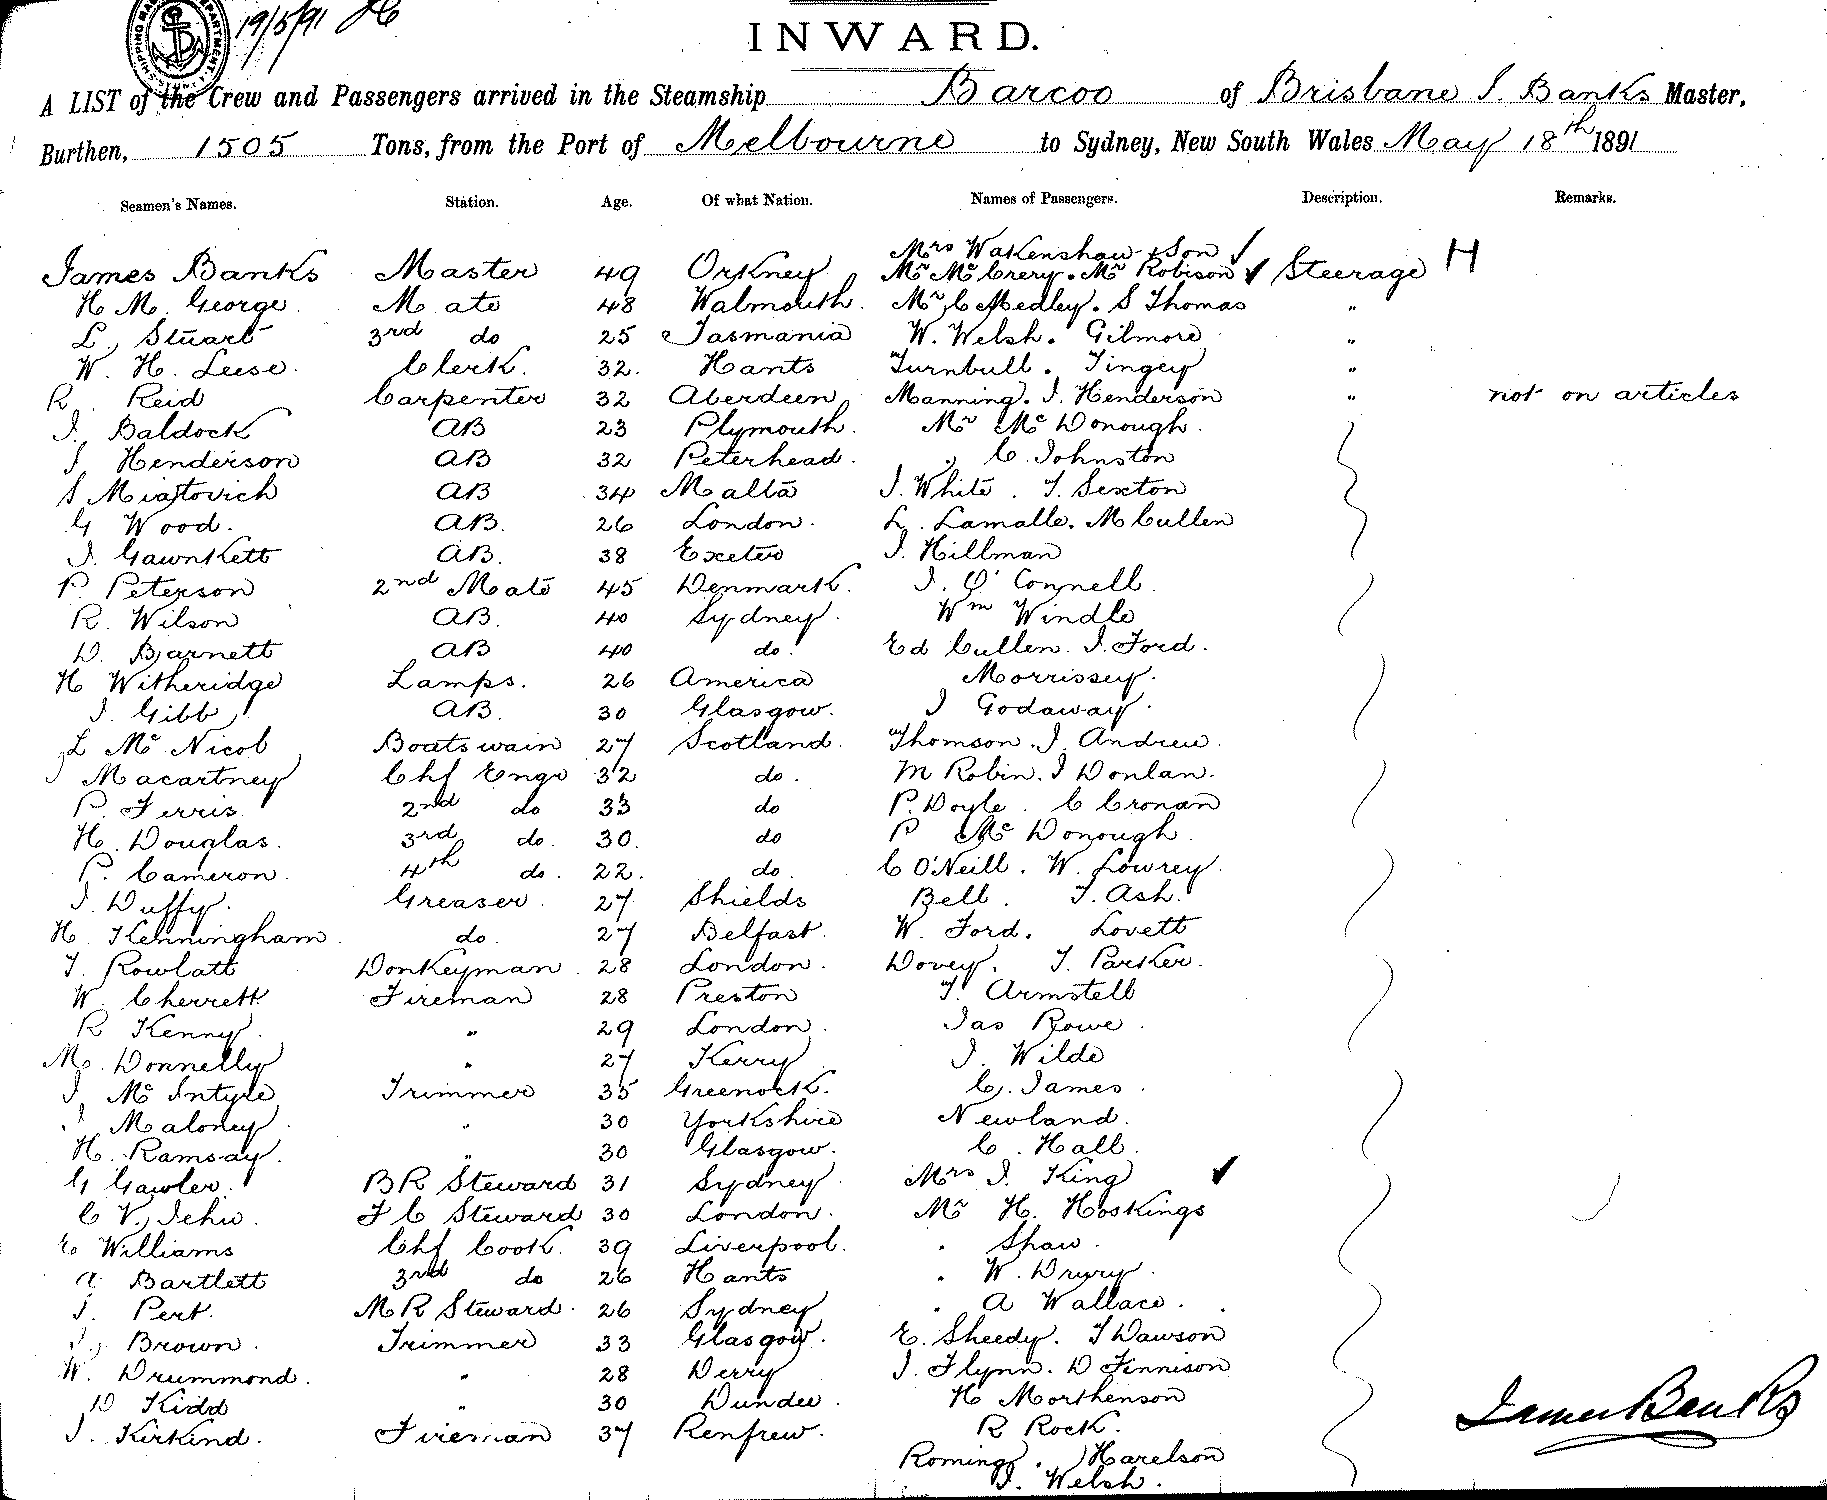 19/5/91
INWARD.
A LIST of the Crew and Passengers arrived in the Steamship Barcoo of Brisbane J. Banks Master,
Burthen, 1505 Tons, from the Port of Melbourne to Sydney, New South Wales May 18th 1891
Seamen's Names. Station. Age. Of what Nation. Names of Passengers. Description. Remarks.
Mrs Wakenshaw & Son
James Banks Master 49 Orkney Mr McCrery. Mr Robison Steerage H
H M George Mate 48 Walmouth. Mr C Medley. S Thomas "
L. Stuart 3rd do 25 Tasmania W. Welsh. Gilmore "
W. H. Leese. Clerk. 32. Hants Turnbull. Tingey "
R. Reid Carpenter 32 Aberdeen Manning. J. Henderson " not on articles
J. Baldock AB 23 Plymouth. Mr McDonough.
J Henderson AB 32 Peterhead. " C. Johnston
S Miatovich AB 34 Malta J. White. T. Sexton
G Wood. AB. 26 London. L. Lamalle. M Cullen
J. Gawnkett AB. 38 Exeter J. Hillman
P. Peterson 2nd Mate 45 Denmark. J. O'Connell
R. Wilson AB. 40 Sydney. Wm Windle
D. Barnett AB 40 do. Ed Cullen. J. Ford.
H Witheridge Lamps. 26 America Morrissey.
J. Gibb AB. 30 Glasgow. J Godaway.
L McNicol Boatswain 27 Scotland. Thomson. J. Andrew.
J Macartney Chf Engr 32 do. M Robin. J Donlan.
P. Ferris 2nd do 33 do P. Doyle. C Cronan
H. Douglas. 3rd do. 30. do P McDonough.
P. Cameron. 4th do. 22. do. C O'Neill. W. Lowrey.
J. Duffy. Greaser. 27 Shields Bell. T. Ash.
H. Kenningham do. 27 Belfast. W. Ford. Lovett
T. Rowlatt Donkeyman 28 London. Dovey. T. Parker.
W. Cherrett Fireman 28 Preston T. Armstell
R Kenny. " 29 London. Jas Rowe.
M. Donnelly " 27 Kerry J. Wilde
J McIntyre Trimmer 35 Greenock. C. James.
J Maloney " 30 Yorkshire Newland.
H. Ramsay. " 30 Glasgow. C. Hall.
G Gawler. BR Steward 31 Sydney. Mrs J. King
C V. Jehu. F C Steward 30 London. Mr H. Hoskings
E. Williams Chf Cook. 39 Liverpool. " Shaw.
A. Bartlett 3rd do 26 Hants " W. Drury.
J. Pert. MR Steward. 26 Sydney " A Wallace.
J. Brown. Trimmer 33 Glasgow. E. Sheedy. T Dawson
W. Drummond. " 28 Derry J. Flynn. D Finnison
D Kidd " 30 Dundee. H Morthenson
J. Kirkind. Fireman 37 Renfrew. R Rock.
Roming. Harelson
J. Welsh.
James Banks